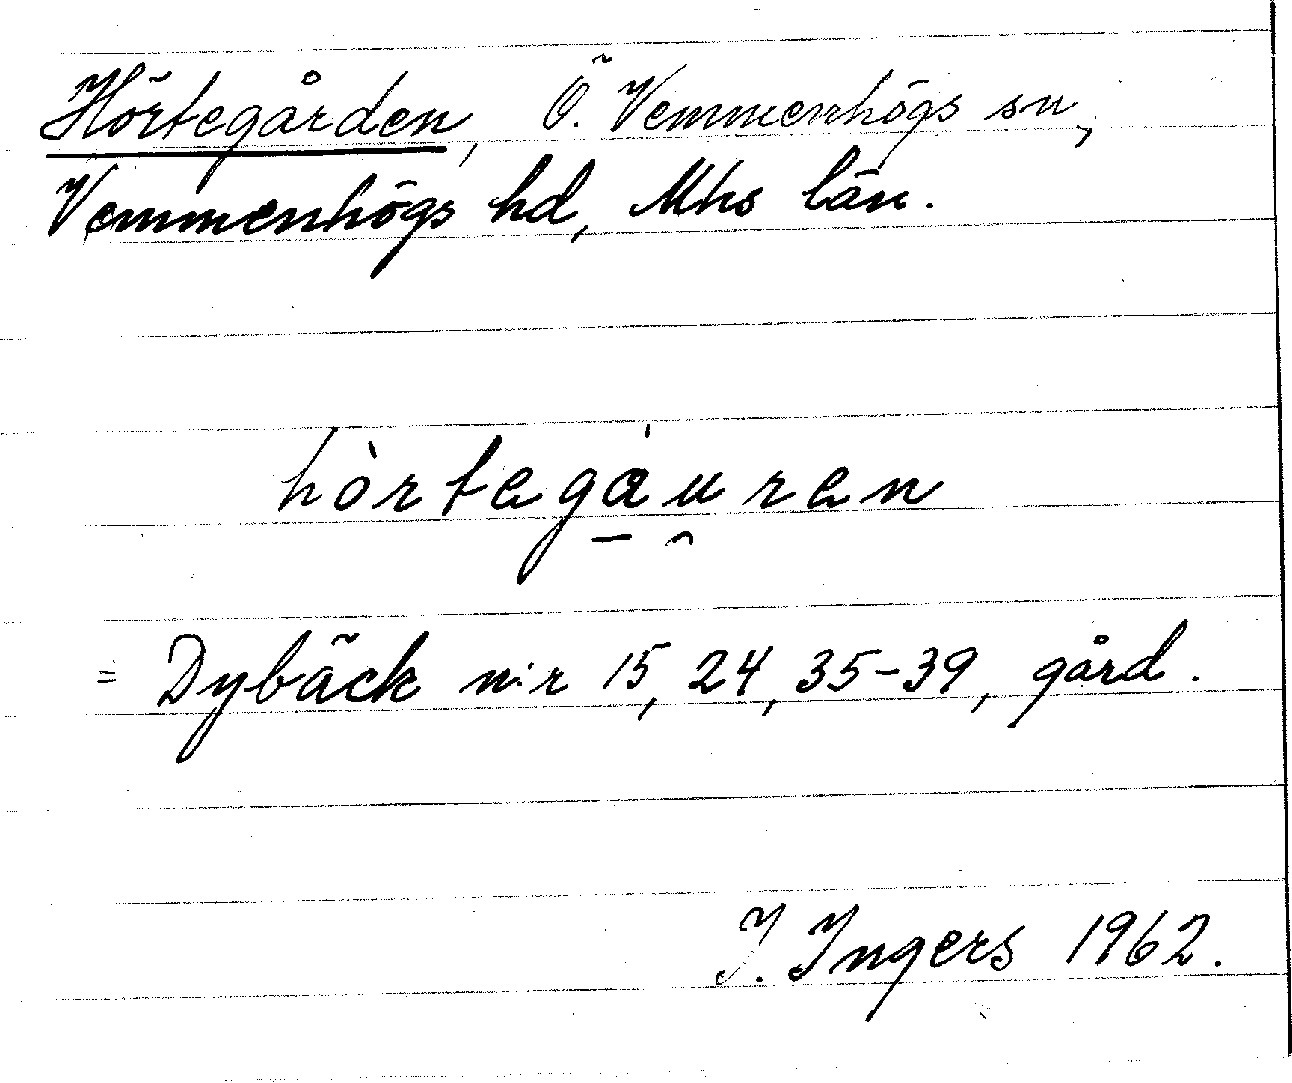 Hörtegården, Ö. Vemmenhögs sn,
Vemmenhögs hd, Mhs län.
hòrtegáu̯ren
= Dybäck n:r 15, 24, 35-39, gård.
I. Ingers 1962.